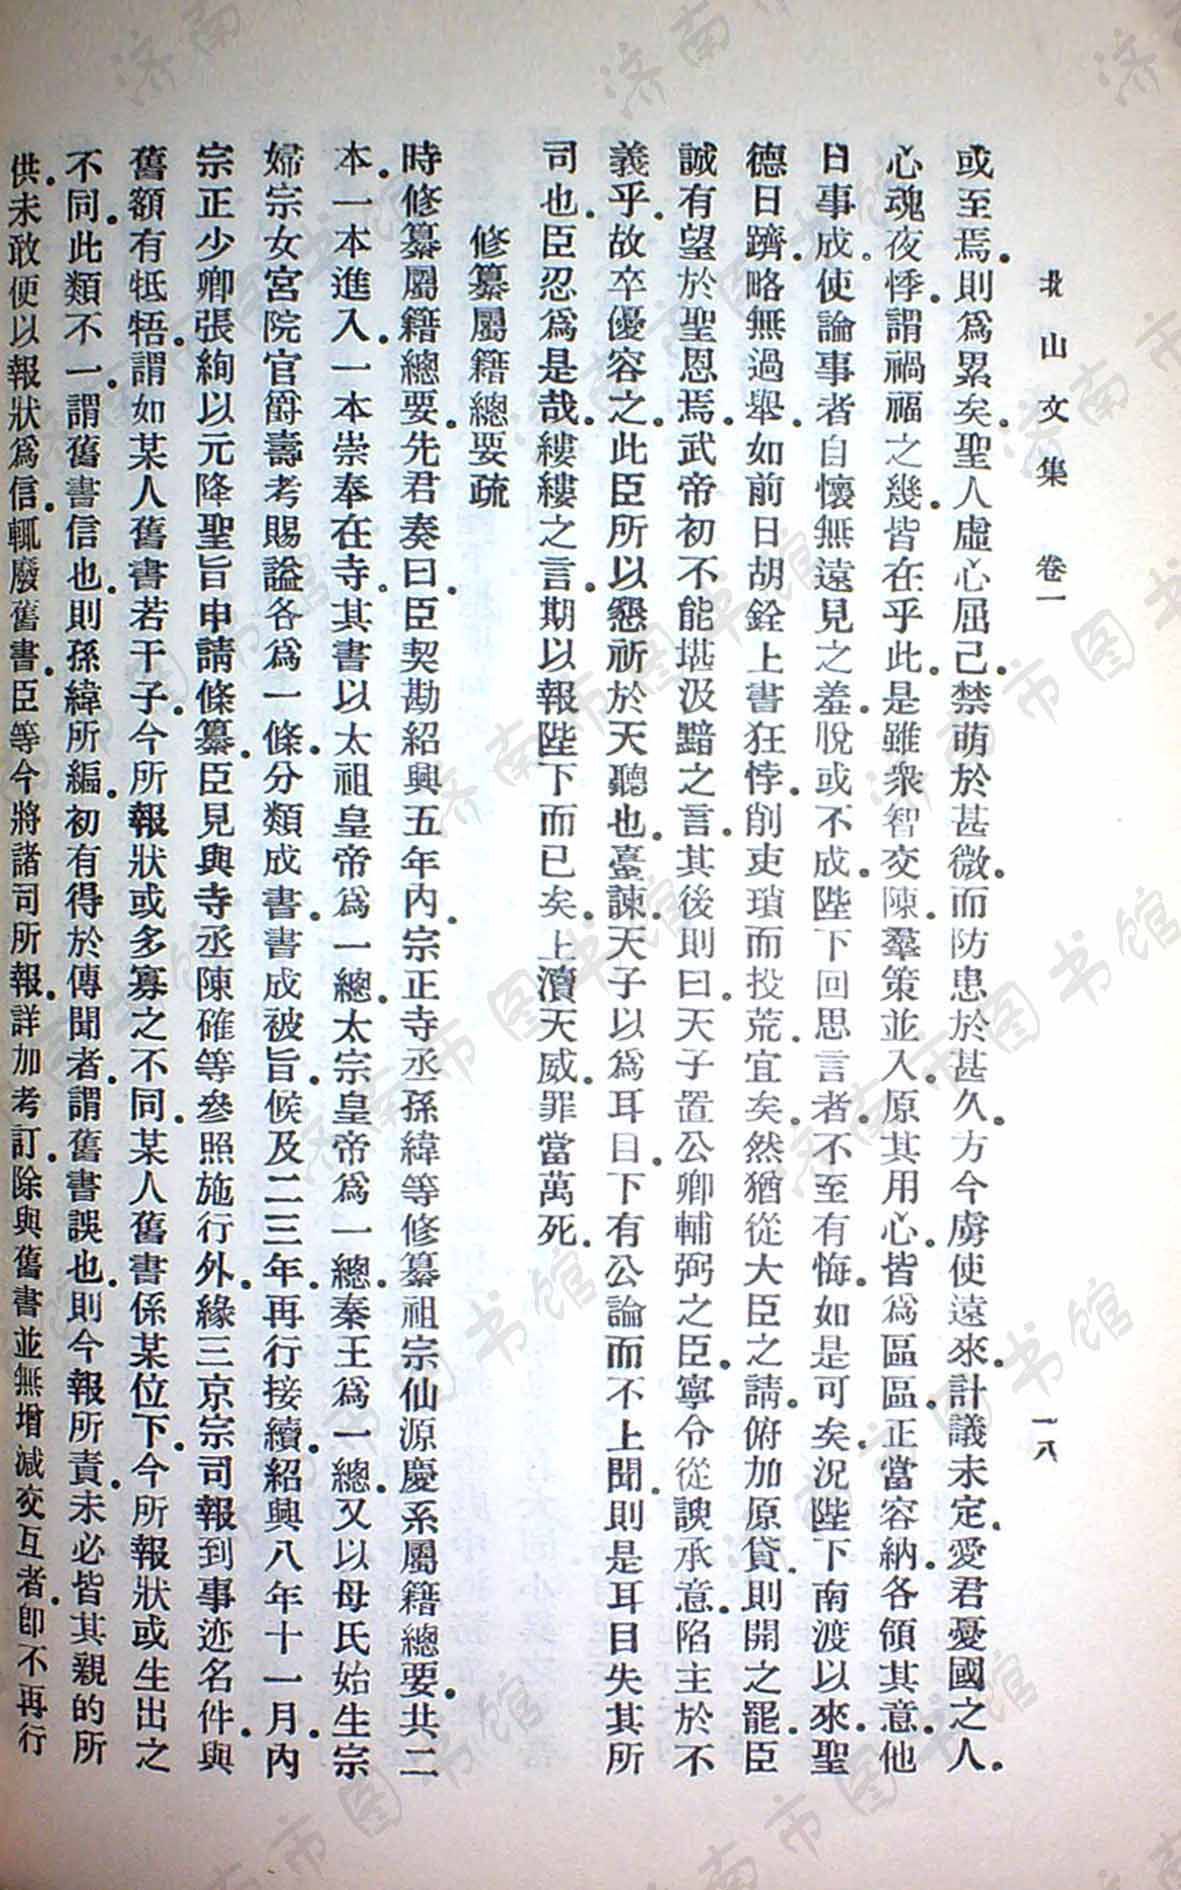 北山文集　卷一　一八
或至焉。則爲累矣。聖人虛心屈己。禁萌於甚微。而防患於甚久。方今虜使遠來。計議未定。愛君憂國之人。
心魂夜悸。謂禍福之幾。皆在乎此。是雖衆智交陳。羣策並入。原其用心。皆爲區區。正當容納。各領其意。他
日事成。使論事者自懷無遠見之羞。脫或不成。陛下回思言者。不至有悔。如是可矣。況陛下南渡以來。聖
德日躋。略無過舉。如前日胡銓上書狂悖。削吏瑣而投荒。宜矣。然猶從大臣之請。俯加原貸。則開之罷。臣
誠有望於聖恩焉。武帝初不能堪汲黯之言。其後則曰。天子置公卿輔弼之臣。寧令從諛承意。陷主於不
義乎。故卒優容之。此臣所以懇祈於天聽也。臺諫天子以爲耳目。下有公論而不上聞。則是耳目失其所
司也。臣忍爲是哉。縷縷之言。期以報陛下而已矣。上瀆天威。罪當萬死。
修纂屬籍總要疏
時修纂屬籍總要。先君奏曰。臣契勘紹興五年內。宗正寺丞孫緯等修纂祖宗仙源慶系屬籍總要。共二
本。一本進入。一本崇奉在寺。其書以太祖皇帝爲一總。太宗皇帝爲一總。秦王爲一總。又以母氏始生宗
婦宗女宮院官爵壽考賜謚各爲一條。分類成書。書成被旨。候及二三年。再行接續。紹興八年十一月。內
宗正少卿張絢以元降聖旨申請條纂。臣見與寺丞陳確等參照施行外。緣三京宗司報到事迹名件。與
舊額有牴牾。謂如某人舊書若干子。今所報狀或多寡之不同。某人舊書係某位下。今所報狀或生出之
不同。此類不一。謂舊書信也。則孫緯所編。初有得於傳聞者。謂舊書誤也。則今報所責。未必皆其親的所
供。未敢便以報狀爲信。輒廢舊書。臣等今將諸司所報。詳加考訂。除與舊書並無增減交互者。卽不再行